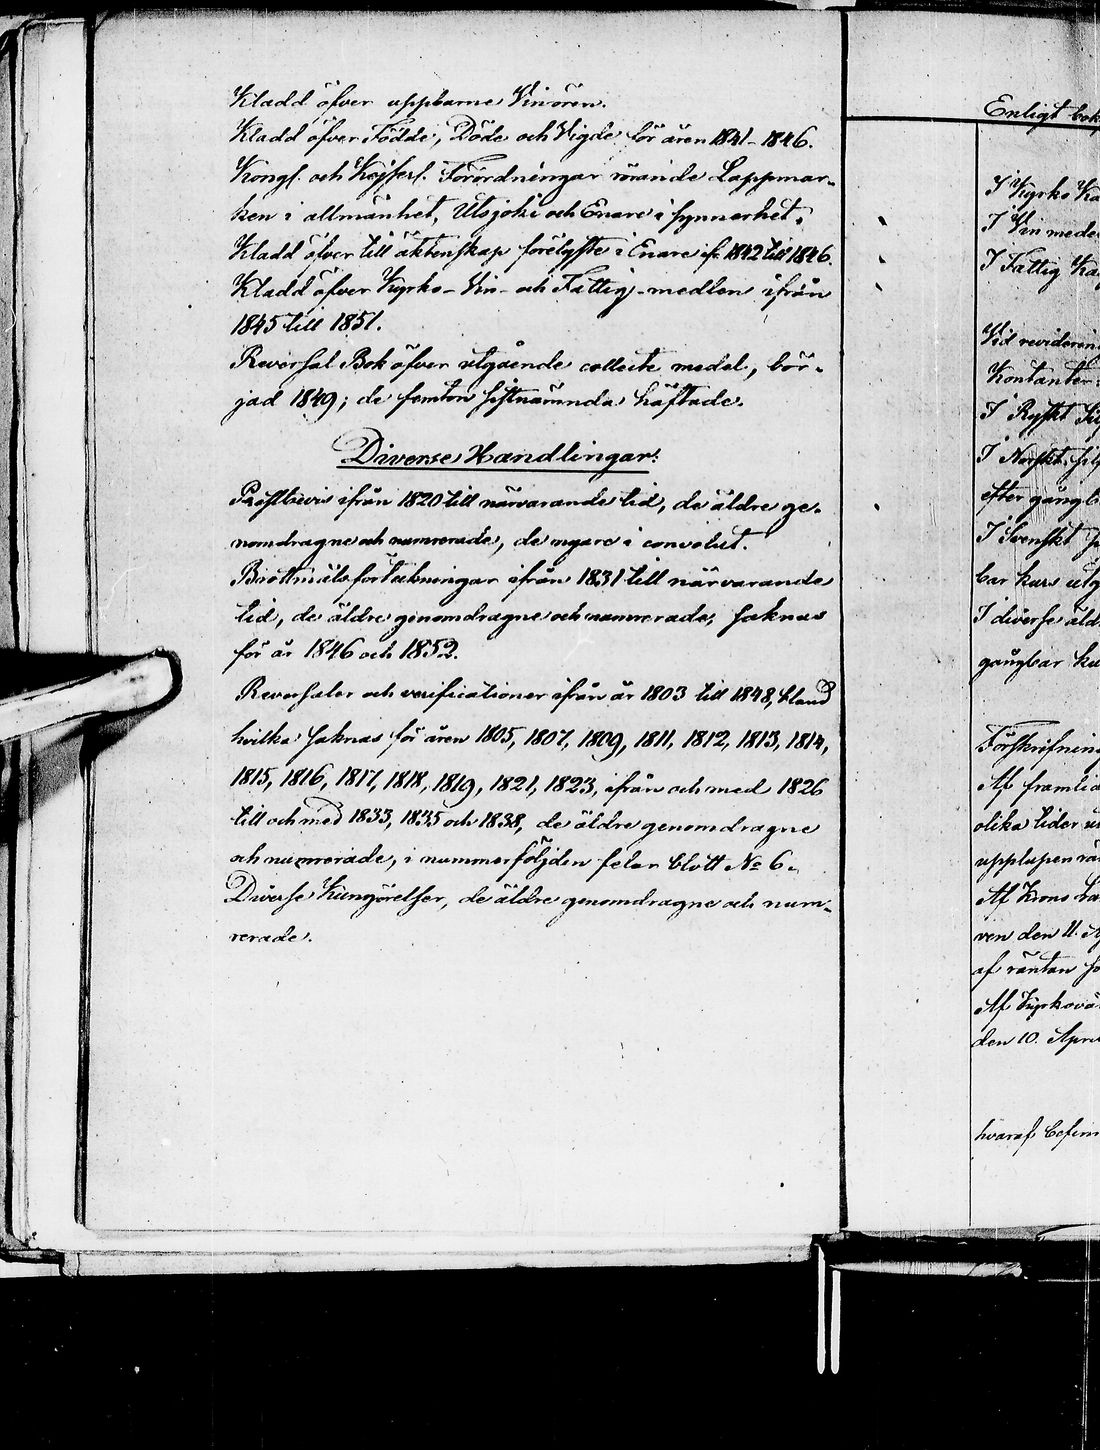 Kladd öfver uppbarne Vinören.
Kladd öfver Födde, Döde och Vigde för åren 1841-1846.
Kongl. och Kejserl. Förordningar rörande Lappmar-
ken i allmänhet, Utsjoki och Enare i synnerhet.
Kladd öfver till äktenskap förelyste i Enare ifr. 1842 till 1846.
Kladd öfver Kyrko- Vin- och Fattig-medlen ifrån
1845 till 1851.
Reversal Bok öfver utgående collecte medel, bör-
jad 1849; de femton sistnämnda häftade.
Diverse Handlingar:
Prestbevis ifrån 1820 till närvarande tid, de äldre ge-
nomdragne och numrerade, de nyare i convolut.
Brottmålsförteckningar ifrån 1831 till närvarande
tid, de äldre genomdragne och numrerade, saknas
för år 1846 och 1852.
Reversaler och verificationer ifrån år 1803 till 1848, bland
hvilka saknas för åren 1805, 1807, 1809, 1811, 1812, 1813, 1814,
1815, 1816, 1817, 1818, 1819, 1821, 1823, ifrån och med 1826
till och med 1833, 1835 och 1838, de äldre genomdragne
och numrerade, i nummerföljden felar blott No 6.
Diverse Kungörelser, de äldre genomdragne och num-
rerade.
Enligt bok
I Kyrko Ka
I Vin mede
I Fattig Kas
Vid reviderin
Kontanter:
I Ryskt Sil
I Norskt sil
efter gångb
I Svenskt
bar kurs utg
I diverse äld
gångbar ku
Förskrifning
Af framlid
olika tider u
upplupen rä
Af Krono
ven den 11. A
af räntan
Af Kyrkovä
den 10. Apri
hvaraf befin